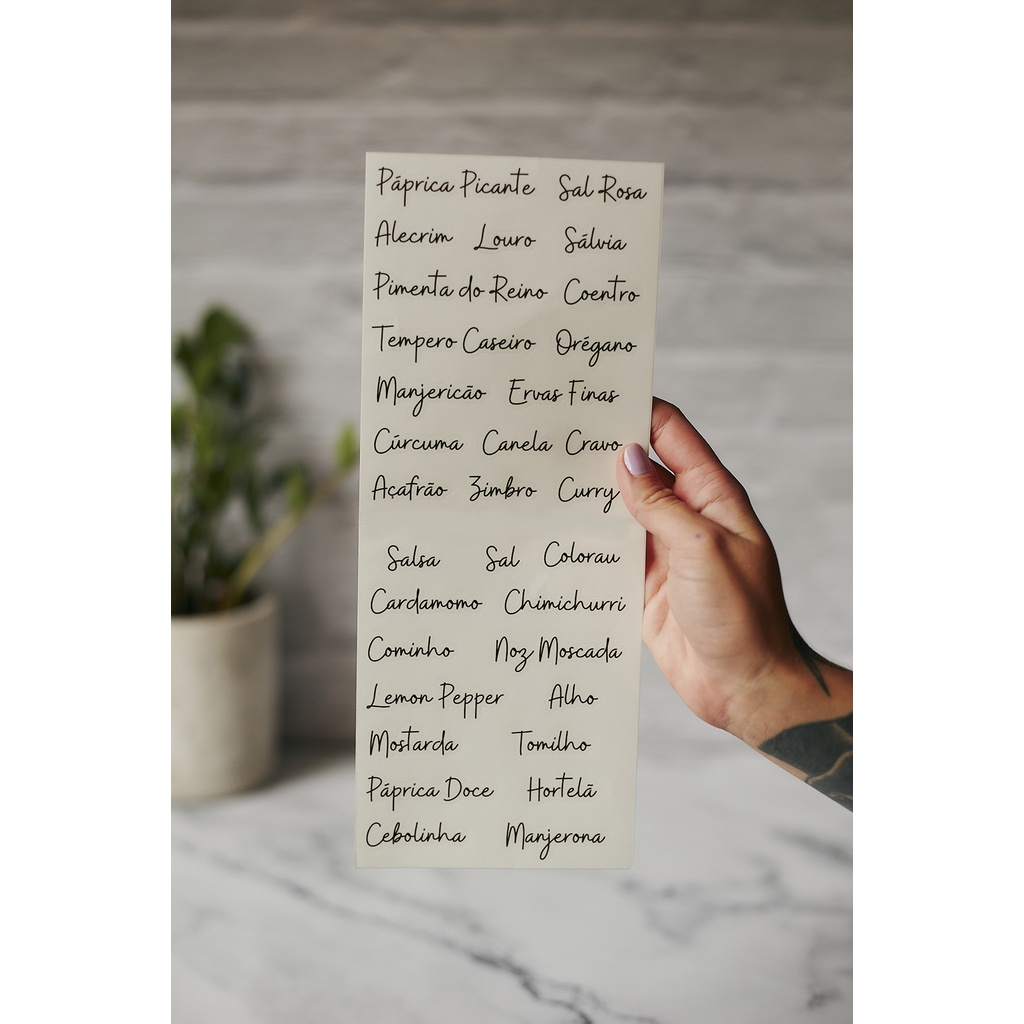 Páprica Picante Sal Rosa
Alecrim Louro Sálvia
Pimenta do Reino Coentro
Tempero Caseiro Orégano
Manjericão Ervas Finas
Cúrcuma Canela Cravo
Açafrão Zimbro Curry
Salsa Sal Colorau
Cardamomo Chimichurri
Cominho Noz Moscada
Lemon Pepper Alho
Mostarda Tomilho
Páprica Doce Hortelã
Cebolinha Manjerona